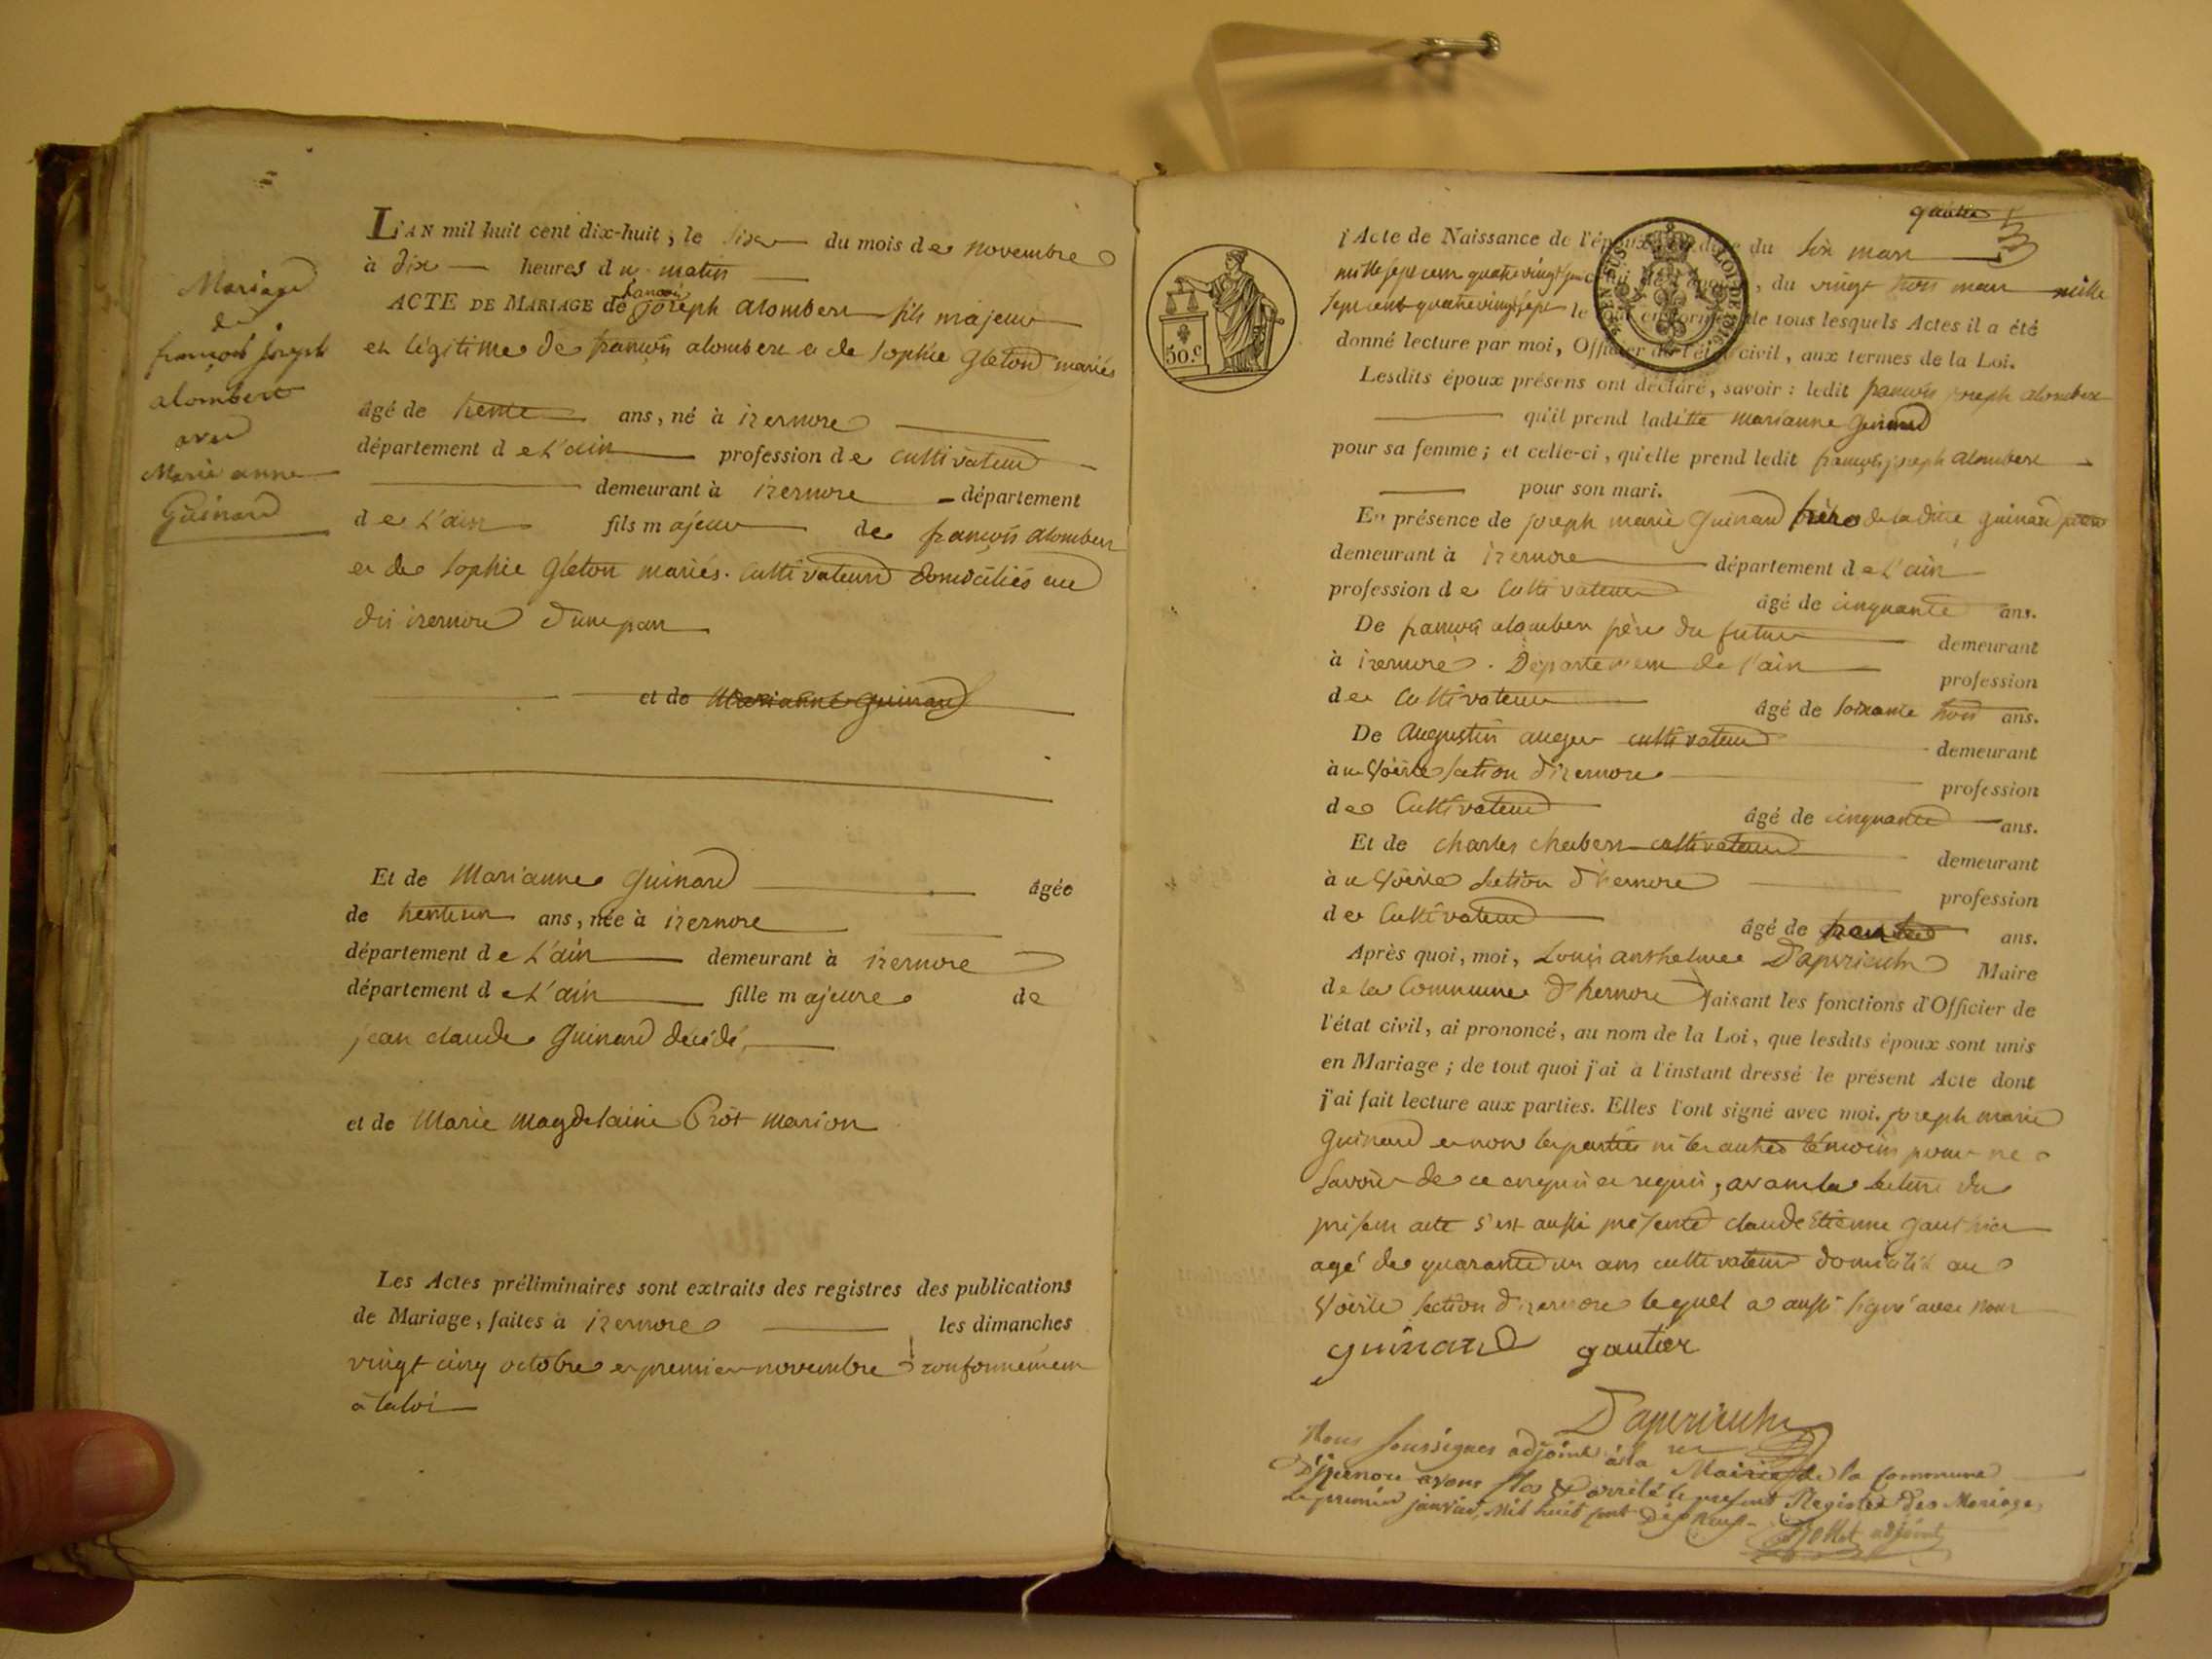 Mariage
de
françois joseph
alombert
avec
Marie anne
Guinard
L'AN mil huit cent dix-huit, le six du mois de novembre
à dix heures du matin
ACTE DE MARIAGE de françois joseph alombert fils majeur
et légitime de françois alombert et de sophie Gleton mariés
âgé de trente ans, né à izernore
département de L'ain profession de cultivateur
demeurant à izernore département
de L'ain fils majeur de françois alombert
et de sophie Gleton mariés. cultivateurs domiciliés au
dit izernore d'une part
et de Marianne Guinard
Et de Marianne Guinard âgée
de trente un ans, née à izernore
département de L'ain demeurant à izernore
département de L'ain fille majeure de
jean claude Guinard décédé,
et de Marie Magdelaine Prôt Marion
Les Actes préliminaires sont extraits des registres des publications
de Mariage, faites à izernore les dimanches
vingt cinq octobre et premier novembre conformement
à la loi
l'Acte de Naissance de l'époux, du six mars
mille sept cent quatre vingt, du vingt trois mars mille
sept cent quatre vingt sept le de tous lesquels Actes il a été
donné lecture par moi, Officier de l'état civil, aux termes de la Loi.
Lesdits époux présens ont déclaré, savoir : ledit françois joseph alombert
qu'il prend laditte marianne Guinard
pour sa femme ; et celle-ci, qu'elle prend ledit françois joseph alombert
pour son mari.
En présence de joseph marie Guinard frère de la ditte guinard
demeurant à izernore département de L'ain
profession de cultivateur âgé de cinquante ans.
De françois alombert père du futur demeurant
à izernore. Département de l'ain profession
de cultivateur âgé de soixante trois ans.
De Augustin auger cultivateur demeurant
au Voërle section d'izernore profession
de Cultivateur âgé de cinquante ans.
Et de charles chabert cultivateur demeurant
au Voërle section d'izernore profession
de Cultivateur âgé de ans.
Après quoi, moi, Louis anthelme D'apvrieulx Maire
de la Commune d'izernore faisant les fonctions d'Officier de
l'état civil, ai prononcé, au nom de la Loi, que lesdits époux sont unis
en Mariage ; de tout quoi j'ai à l'instant dressé le présent Acte dont
j'ai fait lecture aux parties. Elles l'ont signé avec moi. joseph marie
Guinard et non les parties ni les autres témoins pour ne
savoir de ce enquis et requis, avant la lecture du
présent acte s'est aussi présenté claude Etienne gauthier
agé de quarante un ans cultivateur domicilié au
Voërle section d'izernore lequel a aussi signé avec nous
guinard gautier
D'apvrieulx
Nous soussignés adjoint à la Mairie de la commune
D'izernore avons clos & arrêté le present Registre des Mariages
le premier janvier, mil huit cent dix neuf.
adjoint
50.c
EN SUS
LOI DE 1816